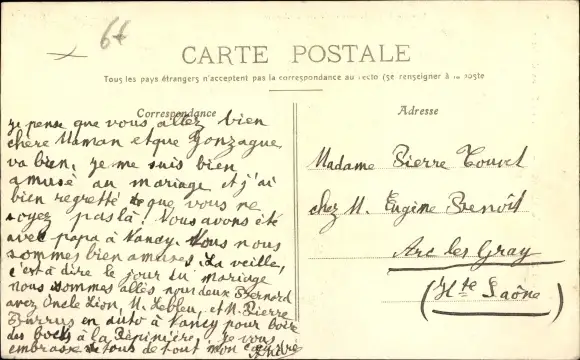 66
CARTE POSTALE
Tous les pays étrangers n'acceptent pas la correspondance au recto (se renseigner à la poste
Correspondance
Adresse
je pense que vous allez bien
chère Maman et que Gonzague
va bien, je me suis bien
amusé au mariage et j'ai
bien regretté que vous ne
soyez pas là! Nous avons été
avec papa à Nancy. Nous nous
sommes bien amusés. La veille,
c'est à dire le jour du mariage
nous sommes allés nous deux Bernard
avez Uncle Lion, M. Lebleu, et M. Pierre
en auto à Nancy pour boire
des bocks à la Pépinière, je vous
embrasse tous de tout mon cœur
André
Madame Pierre Touvet
chez M. Eugène Benoît
Arc les Gray
(Hte Saône)